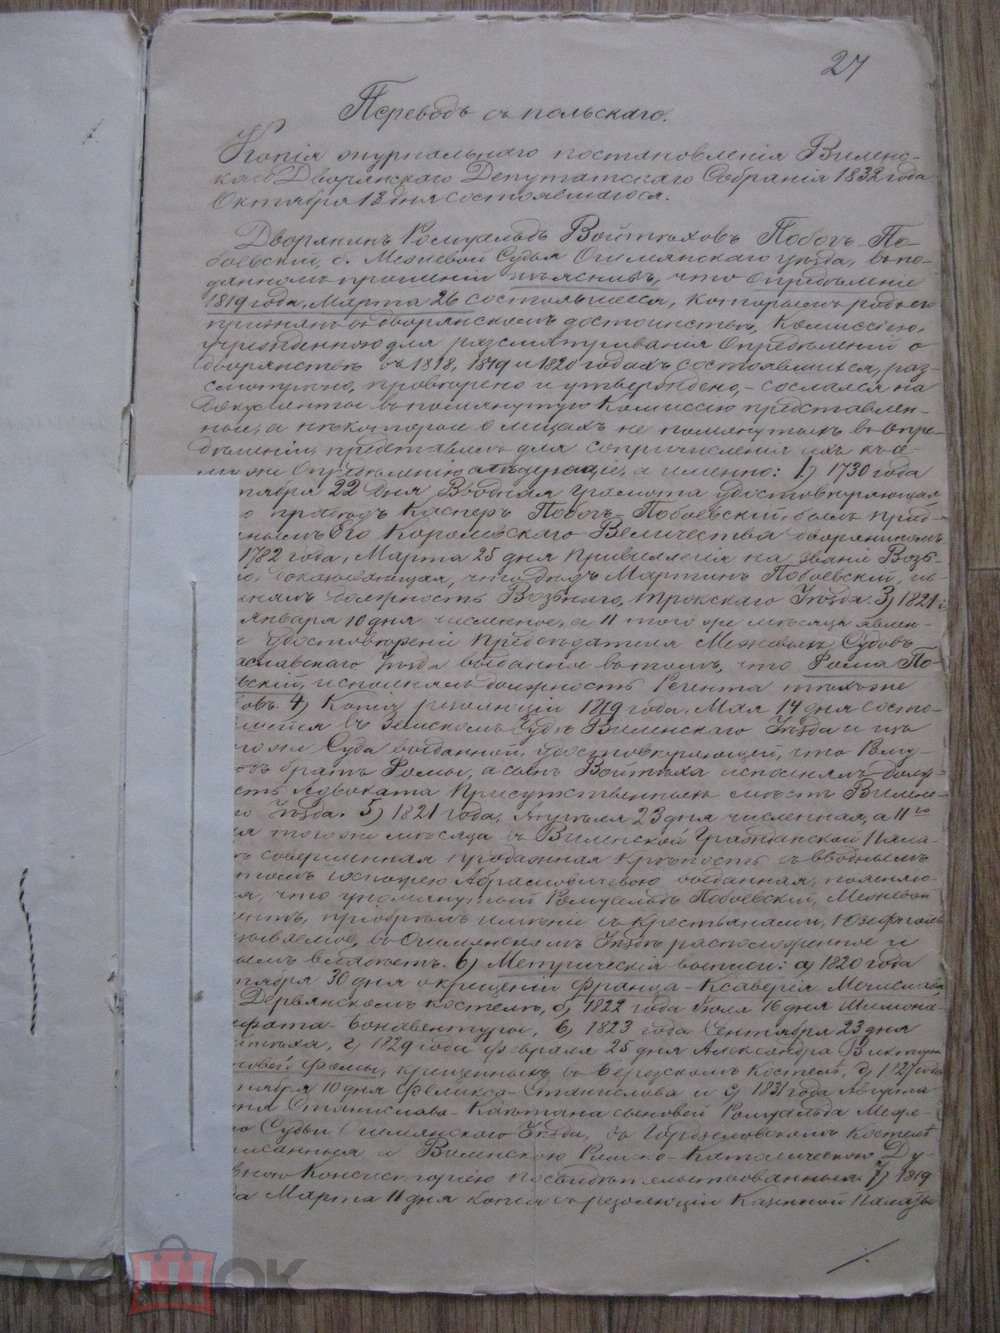 27
Переводъ съ польскаго.
Копія журнальнаго постановленія Виленс-
каго Дворянскаго Депутатскаго Собранія 1832 года
Октября 13 дня состоявшагося.
Дворянинъ Ромуальдъ Войтѣховъ Побогъ-По-
боевскій, б. Межевой Судья Ошмянскаго уѣзда, въ по-
данномъ прошеніи изъяснивъ, что Опредѣленіе
1819 года, Марта 26 состоявшееся, которымъ родъ его
признанъ въ дворянскомъ достоинствѣ, Комиссіею,
учрежденною для разсматриванія Опредѣленій о
дворянствѣ въ 1818, 1819 и 1820 годахъ состоявшихся, раз-
смотрѣно, провѣрено и утверждено, - сослался на
документы въ помянутую Комиссію представлен-
ные, а нѣкоторые о лицахъ не помянутыхъ въ опре-
дѣленіи, представилъ для сопричисленія ихъ къ
Опредѣленію, а именно: 1) 1730 года
тября 22 дня Вводная грамота удостовѣряющая
прадѣдъ Касперъ Побогъ-Побоевскій, былъ
Его Королевскаго Величества дворяниномъ
1782 года, Марта 25 дня Привиллегія на званіе Возъ-
доказывающая, что дѣдъ Мартинъ Побоевскій, ис-
нялъ должность Вознаго, Трокскаго Уѣзда. 3) 1821
Января 10 дня писанное, а 11 того же мѣсяца явлен-
е удостовѣреніе Предсѣдателя Межевыхъ Судовъ
аславскаго уѣзда выданное въ томъ, что Фома По-
вскій, исполнялъ должность Регента тѣхъ же
овъ. 4) Копія резолюціи 1819 года, Мая 14 дня состо-
въ Земскомъ Судѣ Виленскаго Уѣзда и изъ
ого же Суда выданной, удостовѣряющей, что Рому-
дъ братъ Фомы, а сынъ Войтѣха исполнялъ долж-
сть Адвоката Присутственныхъ мѣстъ Вилен-
о Уѣзда. 5) 1821 года, Апрѣля 23 дня численная, а 11го
я того же мѣсяца въ Виленской Гражданской Пала-
ѣ совершенная продажная крѣпость съ вводнымъ
томъ госпожею Абрамовичевою выданная, поясняю-
я, что упомянутый Ромуальдъ Побоевскій, Межевой
ентъ, пріобрѣлъ имѣніе съ крестьянами, Юзефполь
зываемое, въ Ошмянскомъ Уѣздѣ расположенное и
ымъ владѣетъ. 6) Метрическія выписи: а) 1820 года
тября 30 дня о крещеніи Франца-Ксаверія Мечислава
Дервянскомъ костелѣ, б) 1822 года Іюля 16 дня Шимона-
ефата-Бонавентуры, в) 1823 года Сентября 23 дня
йтѣха, г) 1829 года Февраля 25 дня Александра Викто
Фомы, крещенныхъ въ костелѣ, д) 1827 года
тября 10 дня Феликса-Станислава и е) 1831 года Августа
ня Станислава-Каетана сыновей Ромуальда Меже-
о Судьи Ошмянскаго Уѣзда, въ костелѣ
исанныя и Виленскою Римско-Католическою Ду-
вною Консисторіею посвидѣтельствованныя. 7) 1819
да Марта 11 дня копія съ резолюціи Казенной Палаты
МЕШОК